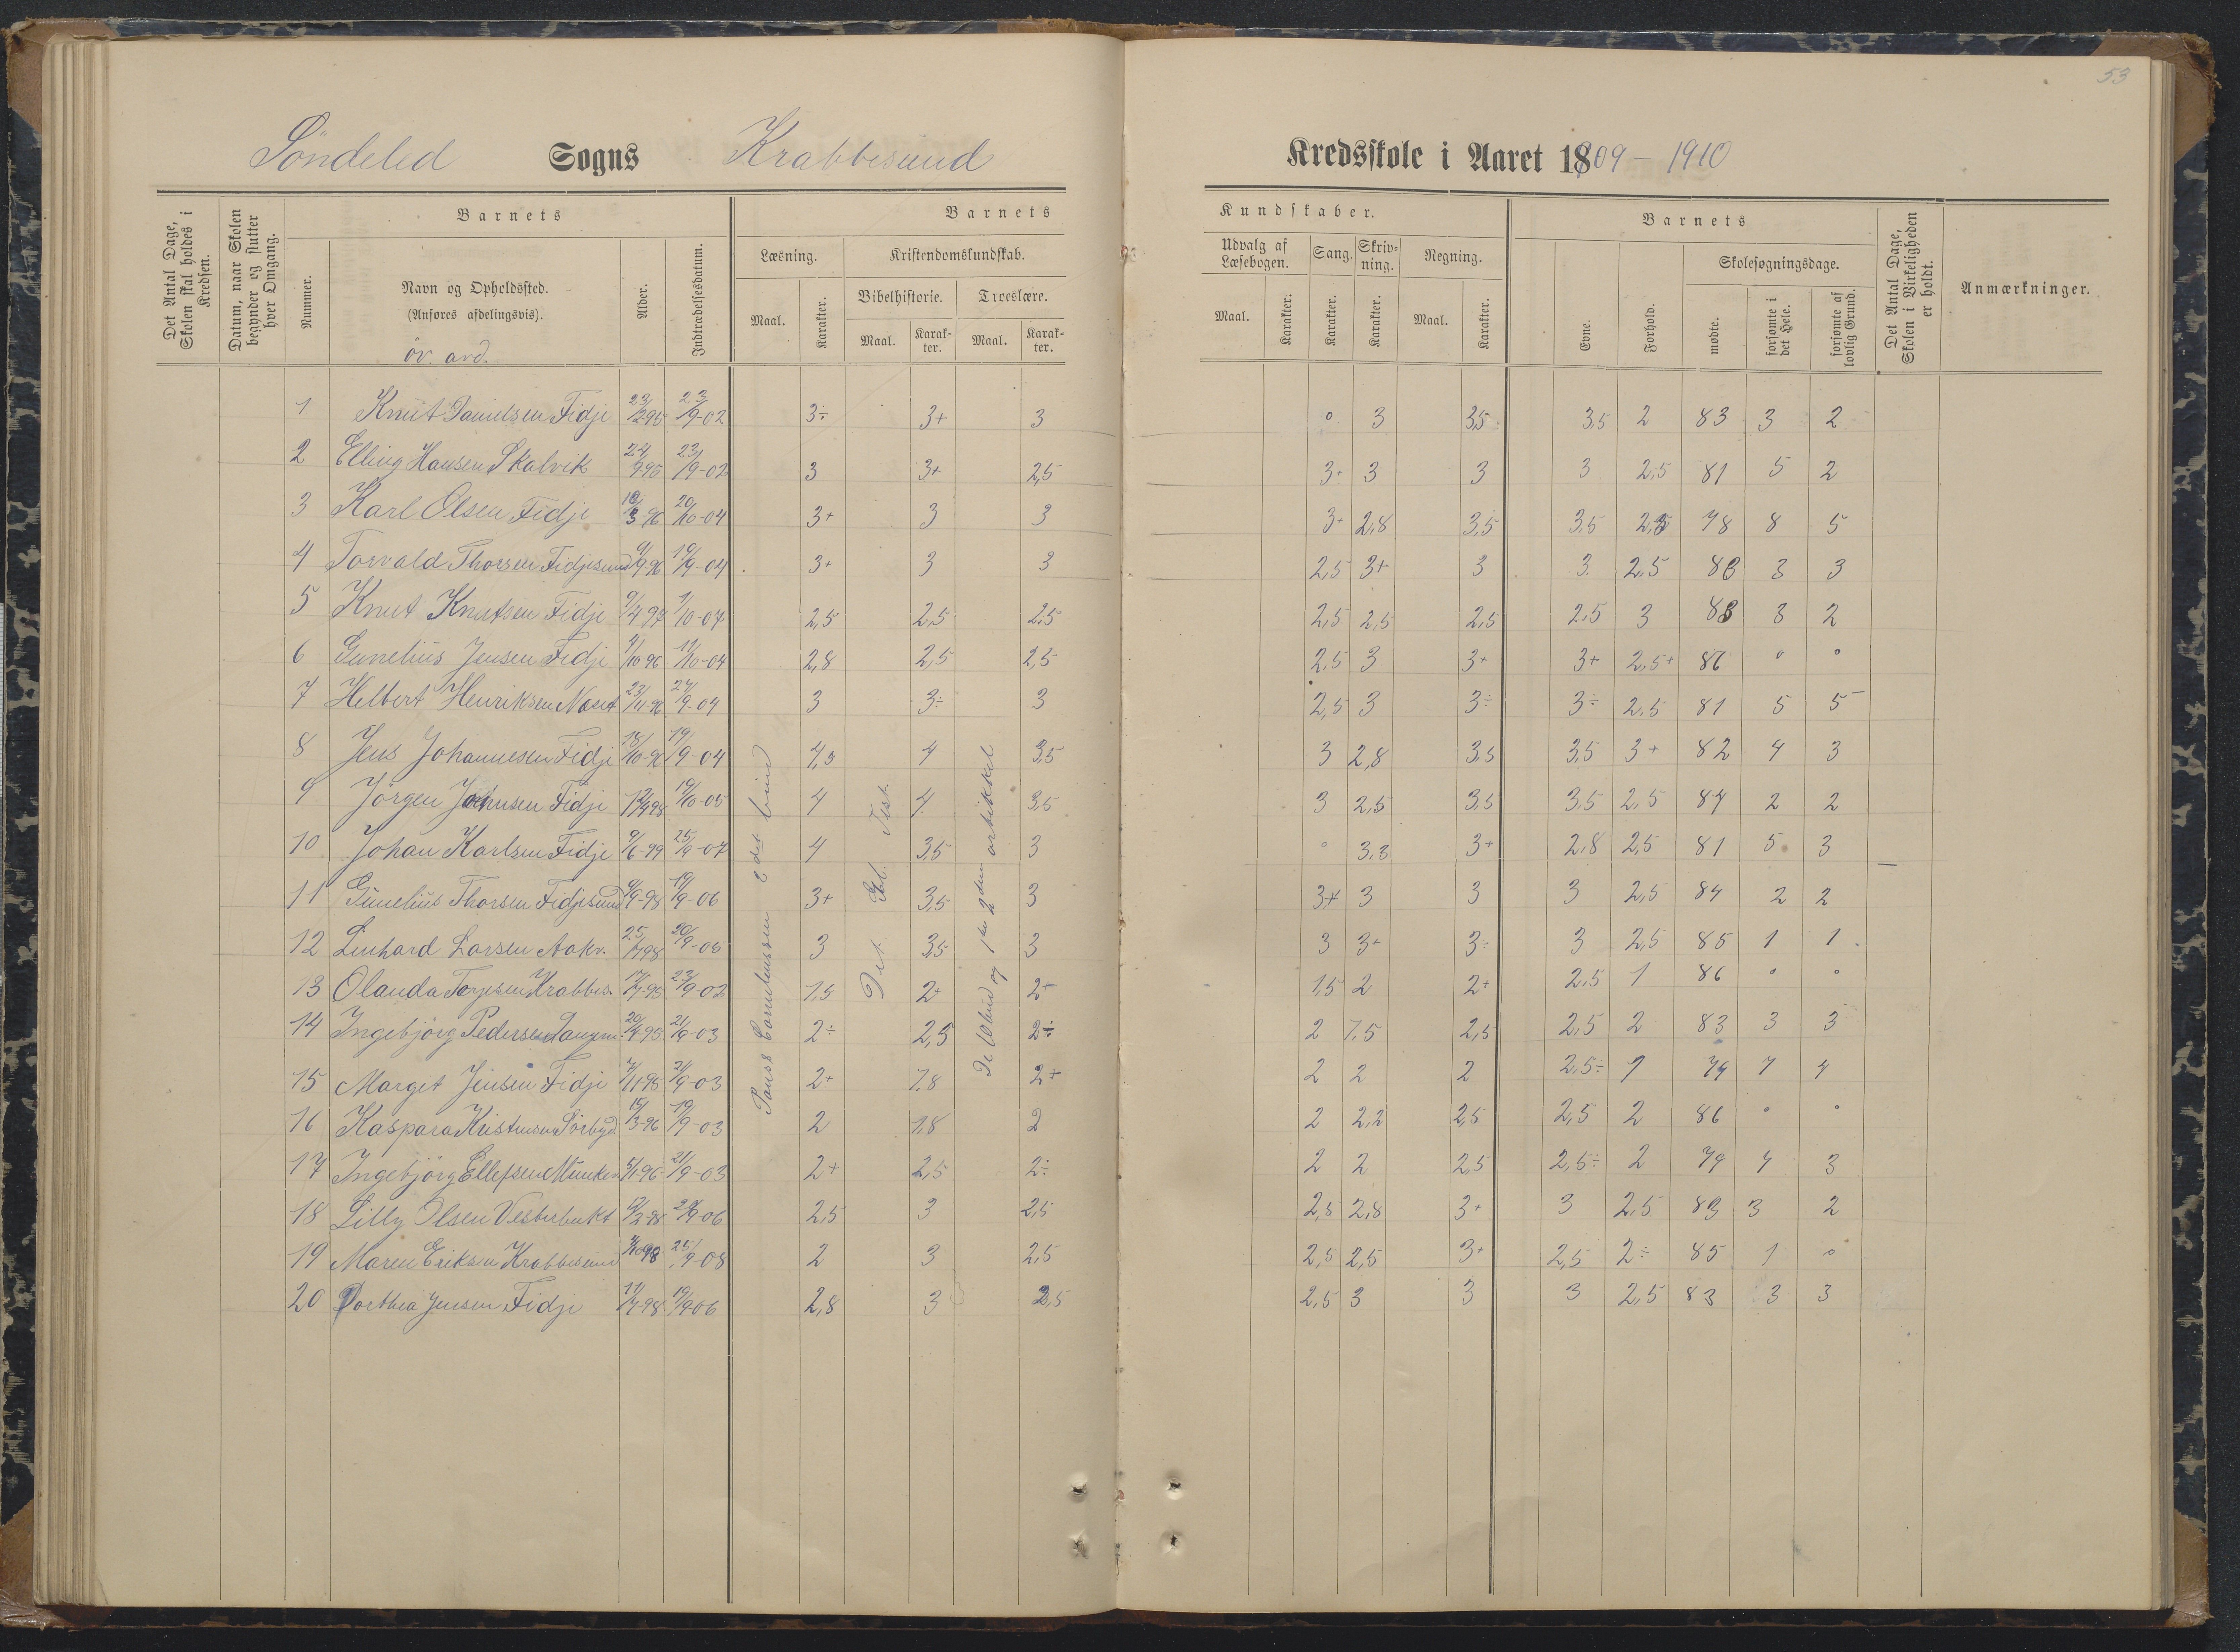 53
Söndeled Sogns Krabbesund Kredsskole i Aaret 1909 - 1910
Det Antal Dage, Skolen skal holdes i Kredsen.
Datum, naar Skolen begynder og slutter hver Omgang.
Barnets
Nummer.
Navn og Opholdssted.
(Anføres afdelingsvis).
öv. avd.
Alder.
Indtrædelsesdatum.
Barnets Kundskaber.
Læsning.
Maal.
Karakter.
Kristendomskundskab.
Bibelhistorie.
Maal.
Karakter.
Troeslære.
Maal.
Karakter.
Udvalg af Læsebogen.
Maal.
Karakter.
Sang.
Karakter.
Skrivning.
Karakter.
Regning.
Maal.
Karakter.
Barnets
Evne.
Forhold.
Skolesøgningsdage.
mødte.
forsømte i det Hele.
forsømte af lovlig Grund.
Det Antal Dage, Skolen i Virkeligheden er holdt.
Anmærkninger.
1 Knut Danielsen Fidje 23/2 95 23/9-02 3÷ 3+ 3 0 3 3,5 3,5 2 83 3 2
2 Elling Hansen Skalvik 24/9 95 23/9-02 3 3+ 2,5 3+ 3 3 3 2,5 81 5 2
3 Karl Olsen Fidje 10/3-96 20/10-04 3+ 3 3 3+ 2,8 3,5 3,5 2,5 78 8 5
4 Torvald Thorsen Fidjesund 9-96 19/9-04 3+ 3 3 2,5 3+ 3 3 2,5 83 3 3
5 Knut Knutsen Fidje 9/4 97 1/10-07 2,5 2,5 2,5 2,5 2,5 2,5 2,5 3 83 3 2
6 Gunelius Jensen Fidje /10 96 11/10-04 2,8 2,5 2,5 2,5 3 3+ 3+ 2,5+ 86 0 0
7 Helbert Henriksen Næset 23/11 96 27/9-04 3 3÷ 3 2,5 3 3÷ 3÷ 2,5 81 5 5
8 Jens Johannesen Fidje 18/10-96 19/9-04 4,5 4 3,5 3 2,8 3,5 3,5 3+ 82 4 3
9 Jörgen Johnsen Fidje 98 19/10-05 4 4 3,5 3 2,5 3,5 3,5 2,5 84 2 2
10 Johan Karlsen Fidje 9/6-99 25/9-07 4 3,5 3 0 3,3 3+ 2,8 2,5 81 5 3
11 Gunelius Thorsen Fidjesund 9-98 19/9-06 3+ 3,5 3 3+ 3 3 3 2,5 84 2 2
12 Linhard Larsen Aakv. 25/7 98 20/9-05 3 3,5 3 3 3+ 3÷ 3 2,5 85 1 1
13 Olanda Terjesen Krabbes. 17/7-95 23/9-02 1,5 2+ 2+ 1,5 2 2+ 2,5 1 86 0 0
14 Ingebjörg Pedersen 20/4-95 21/9-03 2÷ 2,5 2÷ 2 1,5 2,5 2,5 2 83 3 3
15 Margit Jensen Fidje 7/11-95 21/9-03 2+ 1,8 2+ 2 2 2 2,5÷ 1 79 7 4
16 Kaspara Kristensen Sörbyd 15/3-96 19/9-03 2 1,8 2 2 2,2 2,5 2,5 2 86 0 0
17 Ingebjörg Ellefsen Munken 5/1-96 21/9-03 2+ 2,5 2÷ 2 2 2,5 2,5÷ 2 79 7 3
18 Lilly Olsen Vesterbukt 12/2-98 9-06 2,5 3 2,5 2,5 2,8 3+ 3 2,5 83 3 2
19 Maren Eriksen Krabbesund 98 25/9-08 2 3 2,5 2,5 2,5 3+ 2,5 2÷ 85 1 0
20 Dorthea Jensen Fidje 11/7-98 19/9 06 2,8 3 2,5 2,5 3 3 3 2,5 83 3 3
Pauss Corneliussen det bind
Det Gl. Test.
De 10 bud og 1ste 2den artikkel